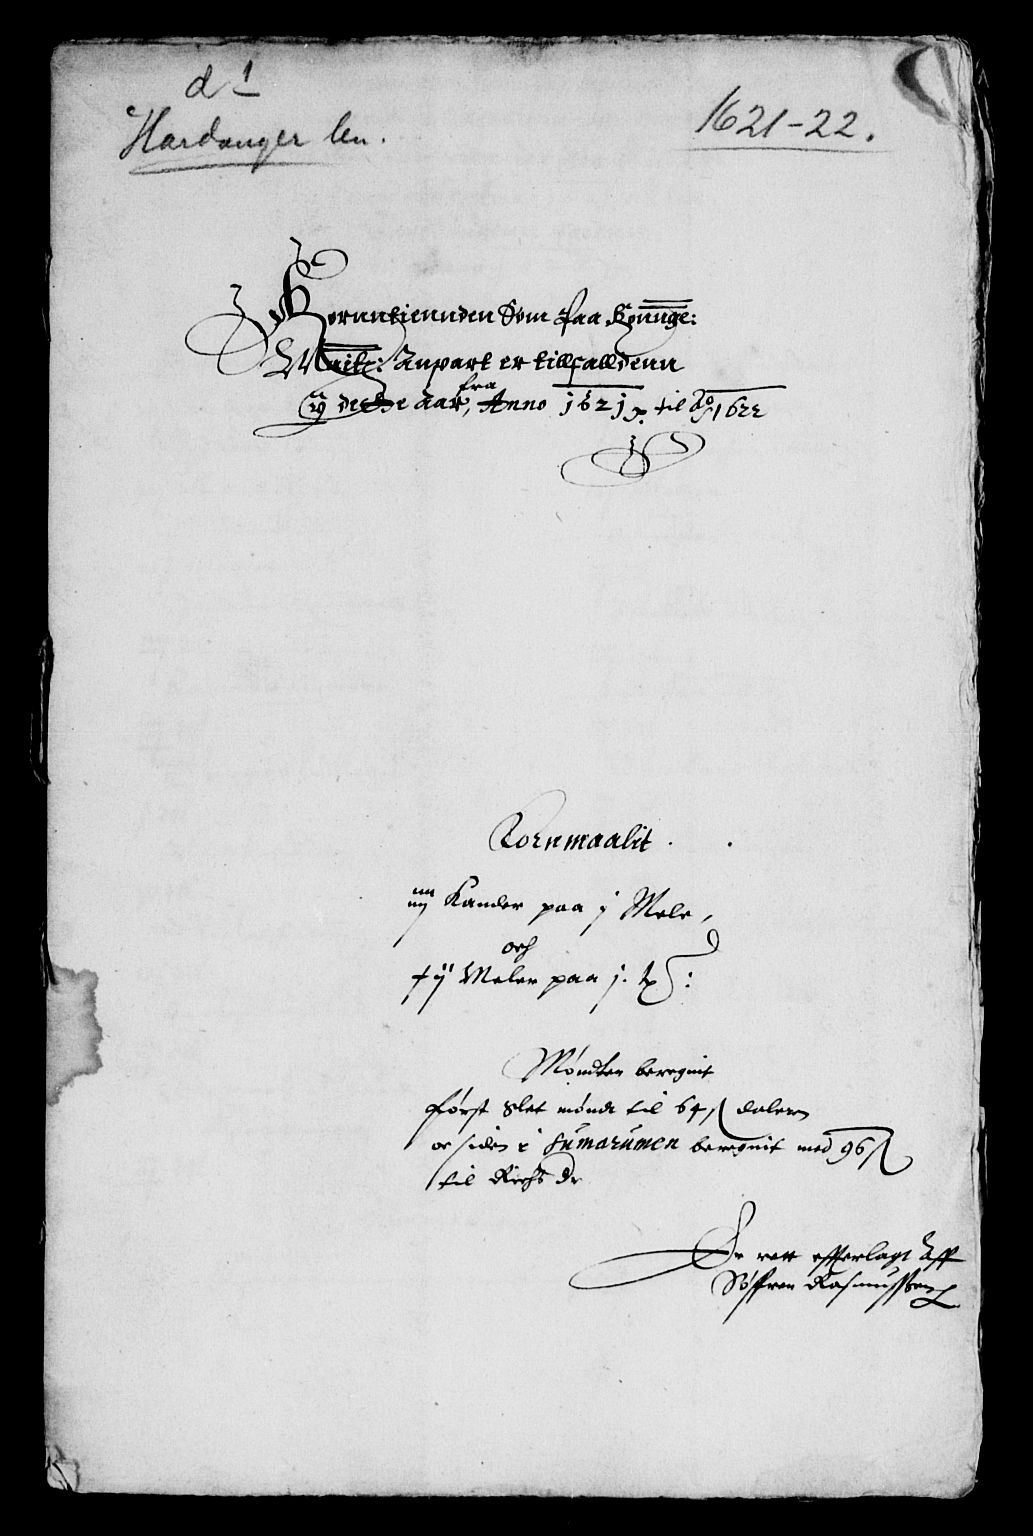 d 1
Hardanger len.
1621-22.
Kornntiennden Som paa Konnge:
Maitz: Anpart er tillfalldenn
ij dette aar, fra Anno 1621 til Ao 1622
Kornmaalit.
iiij Kander paa j Mele,
och
Meler paa j. tø:
Møndten beregnit
først slet mønt til 64 ß daleren
oc siden i Sumarumen beregnit med 96 ß
til Richs dr
Er rett offuerlagt Aff
Søffren Rasmussen